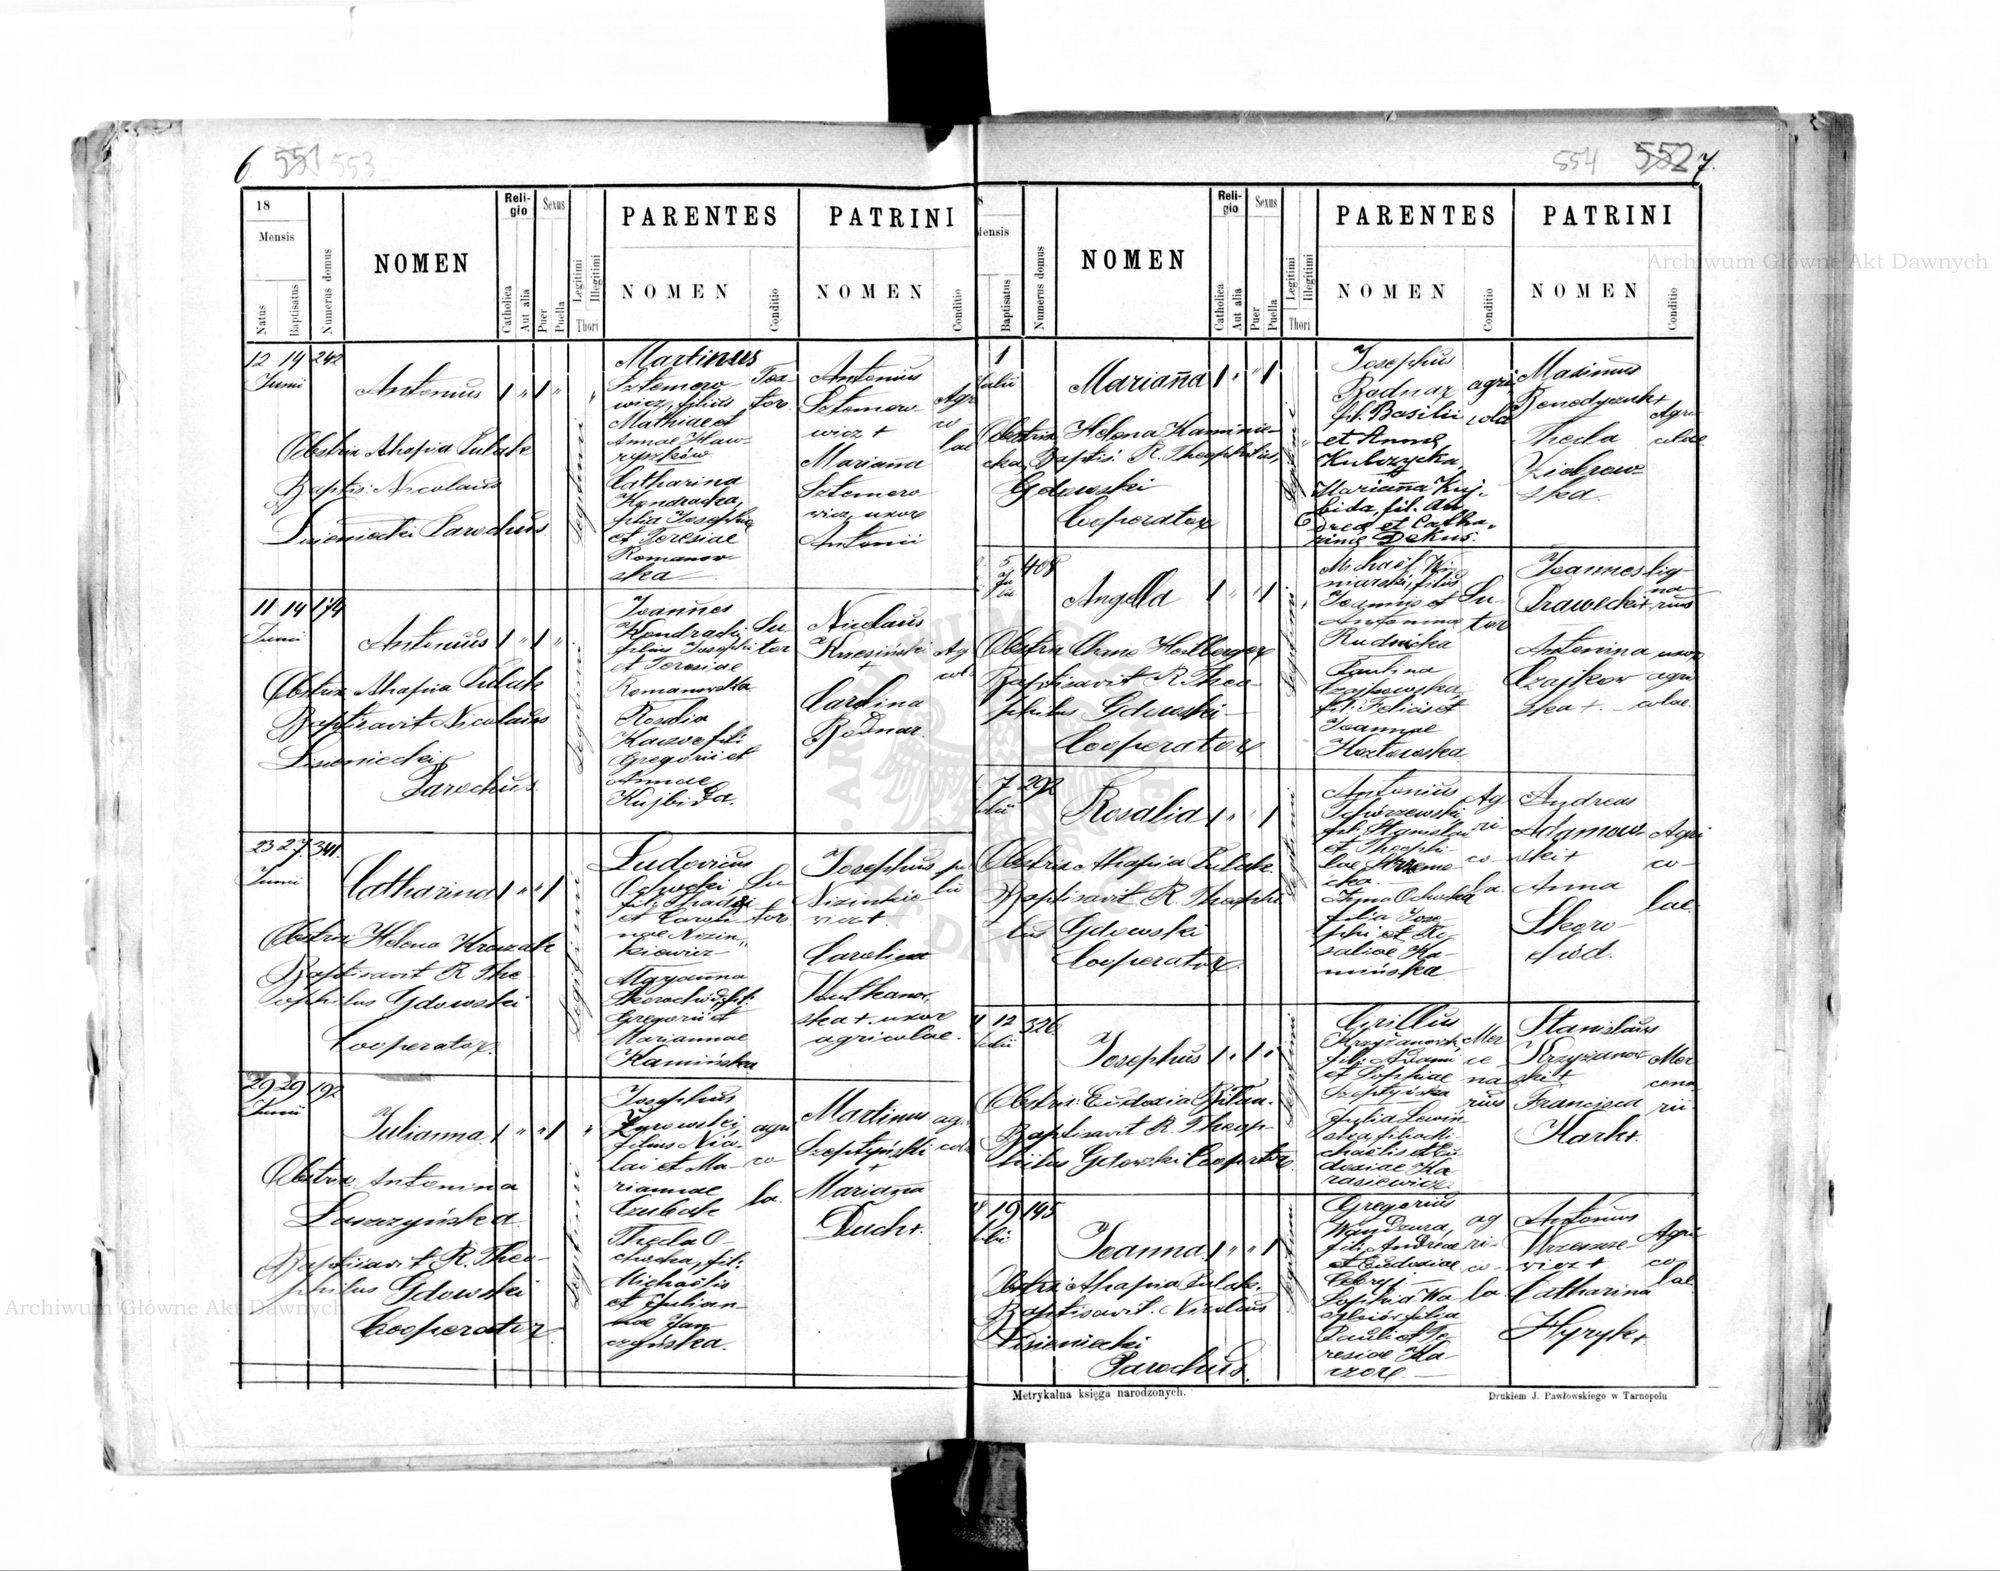 6 551 553
18
Mensis
Natus
Baptisatus
Numerus domus
NOMEN
Reli-
gio
Catholica
Aut alia
Sexus
Puer
Puella
Legitimi
Illegitimi
Thori
PARENTES
NOMEN
Conditio
PATRINI
NOMEN
Conditio
12 14 242
Junii
Antonius
Obstrix Ahapia Pulak
Baptis: Nicolaus
Lisieniecki Parochus
Legitimi
Martinus
Sztemero-
wicz, filius
Mathiae et
Annae Haw-
ryszków
Catharina
Kondracka,
filia Josephi
et Teresiae
Romanow
ska
Antonius
Sztemero-
wicz +
Marianna
Sztemero
wicz, uxor
Antonii
Agri
co
lae
11 14 174
Junii
Antonius
Obstrix Ahapia Pulak
Baptisavit Nicolaus
Lisieniecki
Parochus
Legitimi
Joannes
Kondracki
filius Josephi
et Teresiae
Romanowska
Rosalia
Gregorii et
Annae
Kujbida.
Su-
tor
Nicolaus
+
Carolina
Bodnar.
23 27 341.
Junii
Catharina
Obstrix Helena Krawzak
Baptisavit R. Theo-
ophilus Gdowski
Cooperator
Legitimi
Ludovicus
et Caroli-
nae Nizin-
kiewicz
Maryanna
Gregorii et
Mariannae
Kamińska
Su-
tor
Josephus
Nizinkie-
wicz +
Carolina
Wulkanow-
ska + uxor
agricolae.
29 29 192
Junii
Julianna
Obstrix Antonina
Laszzyńska
Baptisavit R. Theo-
philus Gdowski
Cooperator
Legitimi
Josephus
Żyrowski,
filius Nico-
lai et Ma-
riannae
Czubak
Thecla O-
chocka, fil:
Michaëlis
et Julian-
nae Jan
czyńska.
agri
co
la.
Martinus
Szeptyński
+
Marianna
Duch +
554 552 7.
8
Mensis
Baptisatus
Numerus domus
NOMEN
Reli-
gio
Catholica
Aut alia
Sexus
Puer
Puella
Legitimi
Illegitimi
Thori
PARENTES
NOMEN
Conditio
PATRINI
NOMEN
Conditio
1
Julii
Marianna
Obstrix Helena Kaminie-
cka, Baptis: R. Theophilus,
Gdowski
Cooperator
Legitimi
Josephus
Bodnar
fil. Basilii
et Annae
Kubzycka,
Marianna Kuj-
bida, fil. An
dreae et Catha-
rinae Dekus.
agri
cola
Maximus
Benedyczuk +
Thecla
Ziobrow-
ska.
Agri
colae
5 408
Julii
Angela
Obstrix Anna Helberger
Baptisavit R. Theo-
philus Gdowski
Cooperator
Legitimi
Michaël Wi-
niarski, filius
Joannis et
Antonina
Rudnicka
Paulina
Czajkowska,
fil: Felicis et
Joannae
Kozłowska
Su-
tor
Joannes
Prawecki +
Antonina
Czajkow
ska +.
lig-
na-
rius
uxor
agri
colae
7 292
Julii
Rosalia
Obstrix Ahapia Pulak.
Baptisavit R. Theophi
lus Gdowski
Cooperator.
Legitimi
Antonius
Tchórzewski,
fil. Stanislai
et Theophi-
lae
filia Jose-
phi et Ro-
saliae Ka-
mińska
Ag-
ri-
co-
la.
Andreas
Adamow-
ski +
Anna
Skoro-
chód.
Agri
co-
lae
12 326.
Julii
Josephus
Obstrix: Eudoxia Bilan.
Baptisavit R. Theop-
hilus Gdowski Cooperator.
Legitimi
Cirillus
Krzyżanowski,
fil: Adami
et Sophiae
Szeptyńska
Julia Lewin
ska filia Mi-
chaëlis et Eu
doxiae Ka
rasiewicz.
Mer
ce
na
rius
Stanislaus
Krzyżanow
ski +
Francisca
Hark +.
Mer
cena
rii-
19 145
Julii
Joanna
Obstrix Ahapia Pulak.
Baptisavit. Nicolaus
Lisieniecki
Parochus.
Legitimi
Gregorius
Wandzura,
fili. Andreae
et Eudoxiae
Cebryj.
Sophia Wa
filia
Pauli et Te-
resiae Ka-
czor.
ag
ri-
co-
la.
Antonius
Wrzeszcze-
wicz +
Catharina
Hyryk +
Agri
co
lae
Metrykalna księga narodzonych.
Drukiem J. Pawłowskiego w Tarnopolu
Archiwum Główne Akt Dawnych
Archiwum Główne Akt Dawnych